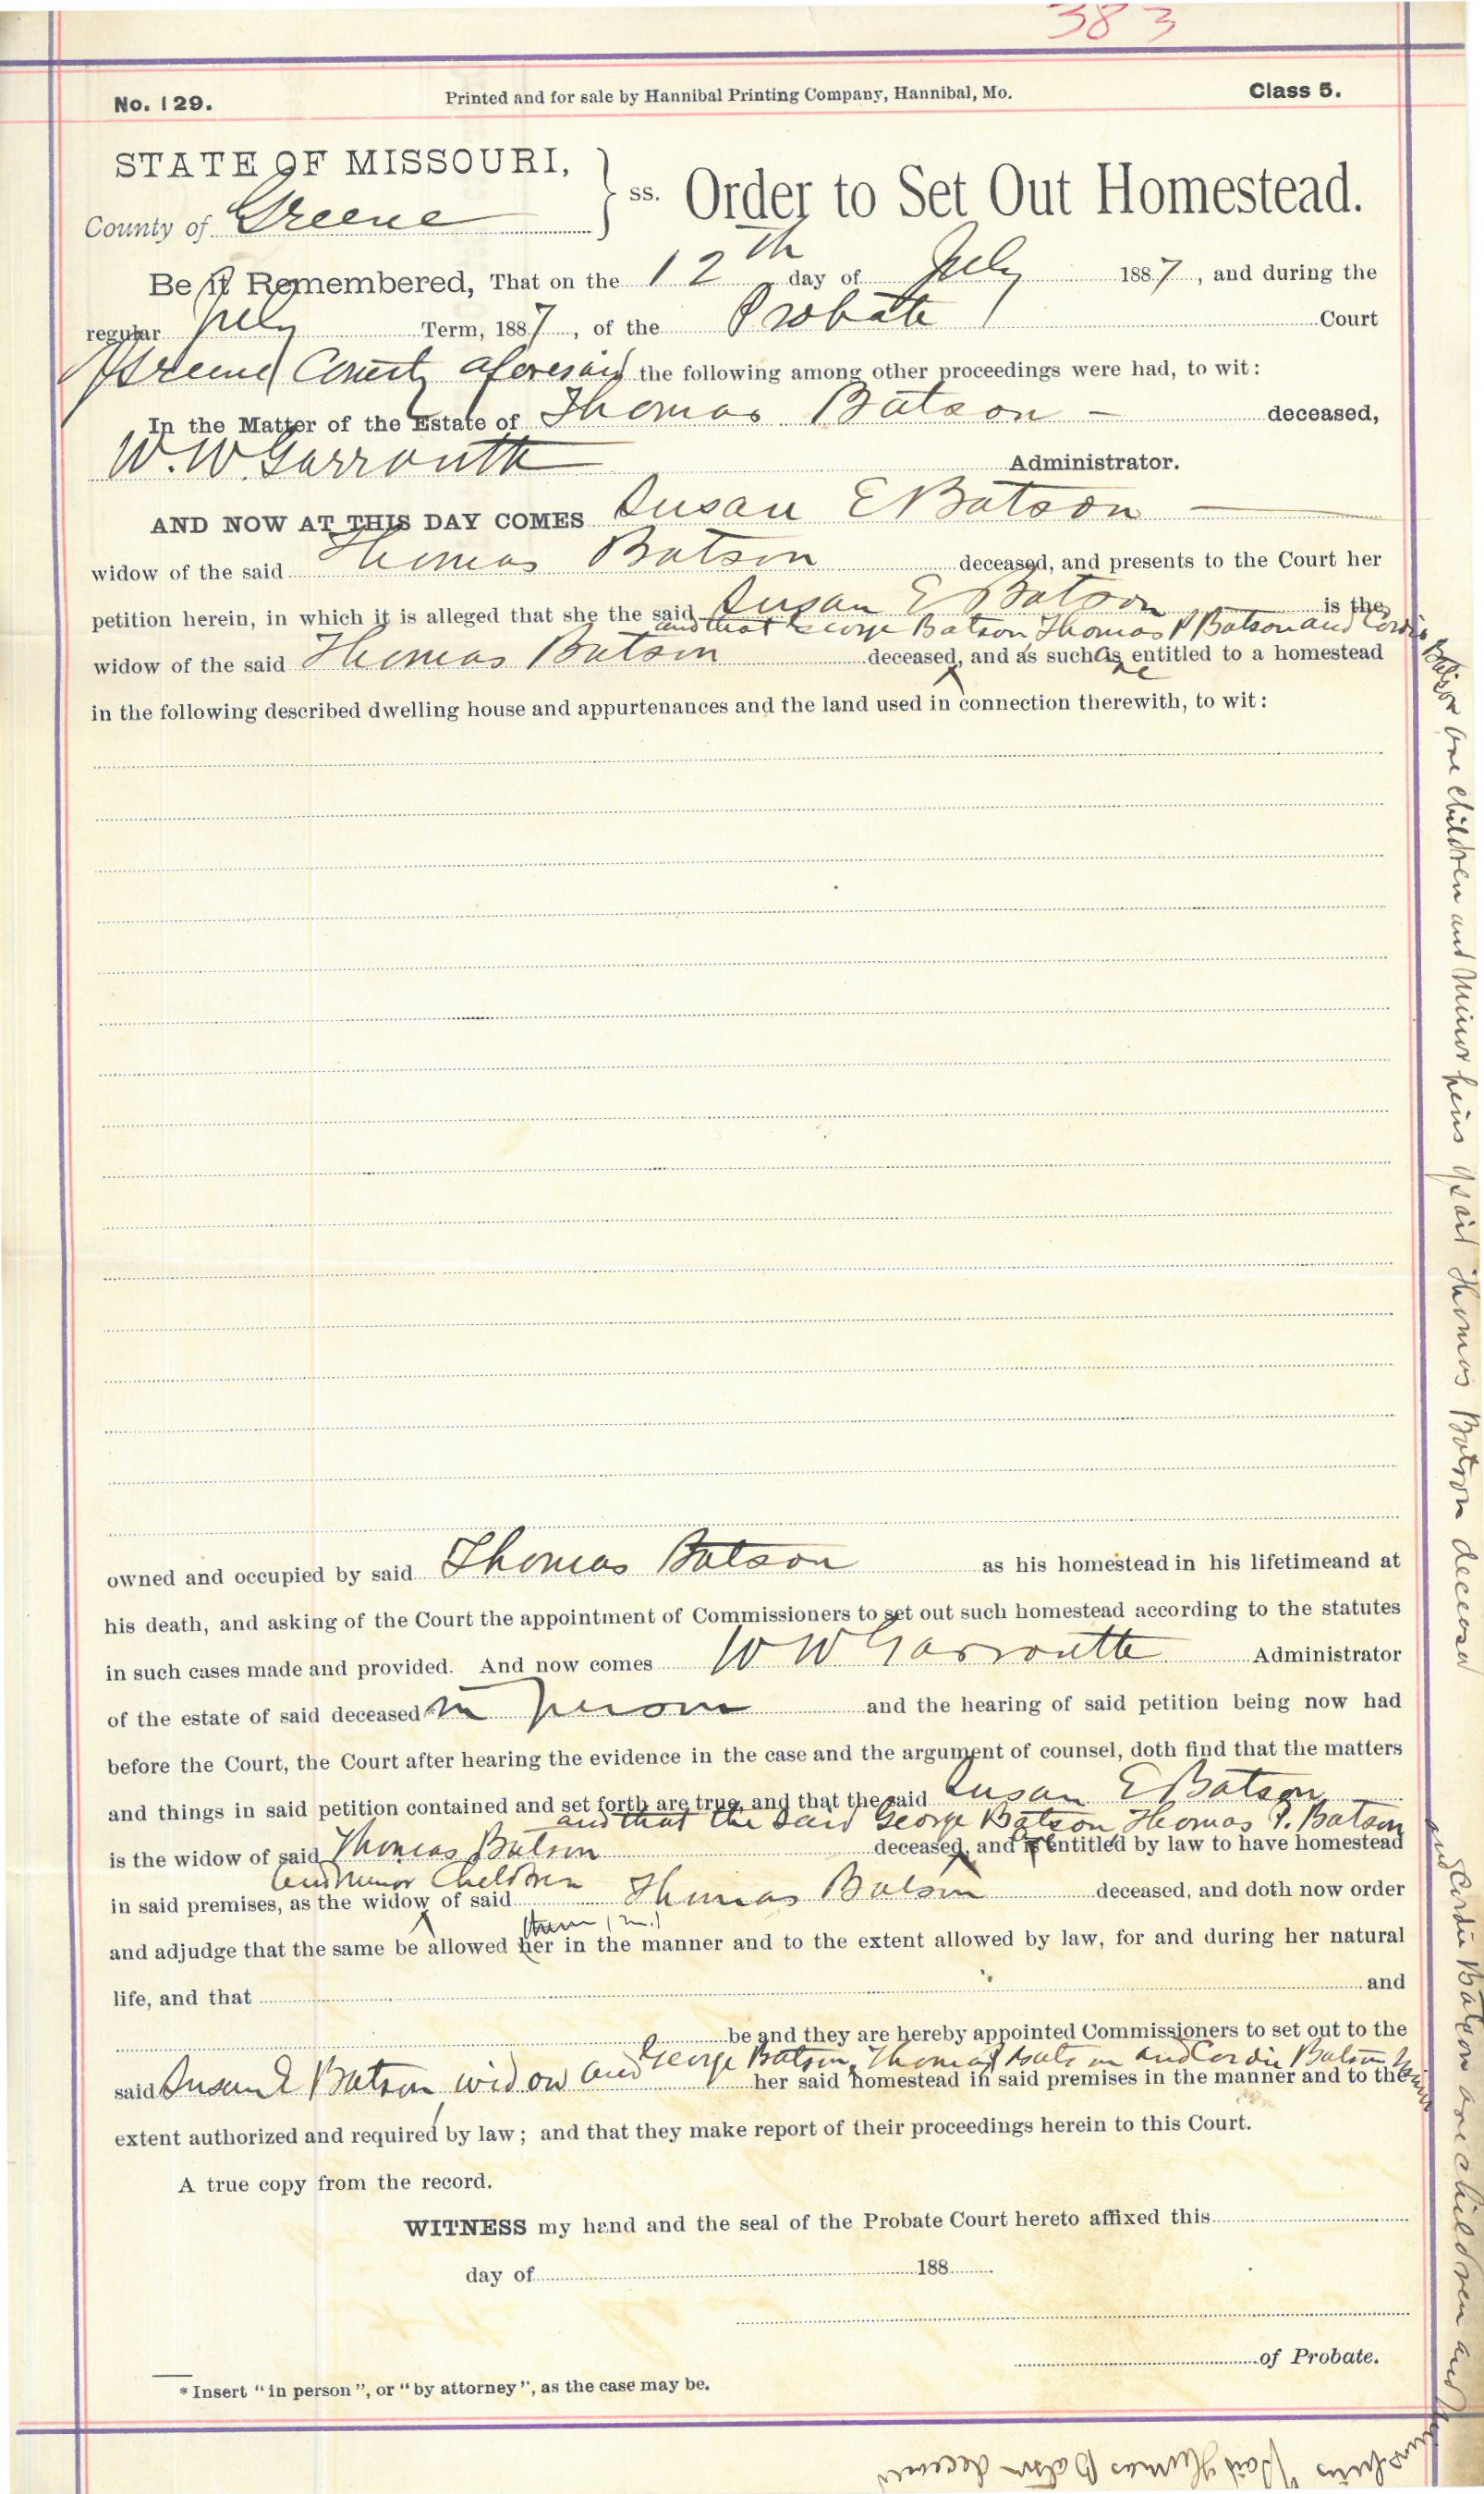 383
No. 129. Printed and for sale by Hannibal Printing Company, Hannibal, Mo. Class 5.
STATE OF MISSOURI,
County of Greene } ss. Order to Set Out Homestead.
Be it Remembered, That on the 12th day of July 1887, and during the
regular July Term, 1887, of the Probate Court
Greene County aforesaid the following among other proceedings were had, to wit:
In the Matter of the Estate of Thomas Batson deceased,
W. W Garroutte Administrator.
AND NOW AT THIS DAY COMES Susan E Batson
widow of the said Thomas Batson deceased, and presents to the Court her
petition herein, in which it is alleged that she the said Susan E Batson is the
and that George Batson Thomas P Batson and Cordie
Batson are children and minor heirs of said Thomas Batson deceased
widow of the said Thomas Batson deceased, and as such is are entitled to a homestead
in the following described dwelling house and appurtenances and the land used in connection therewith, to wit:
owned and occupied by said Thomas Batson as his homestead in his lifetimeand at
his death, and asking of the Court the appointment of Commissioners to set out such homestead according to the statutes
in such cases made and provided. And now comes W W Garroutte Administrator
of the estate of said deceased * in person and the hearing of said petition being now had
before the Court, the Court after hearing the evidence in the case and the argument of counsel, doth find that the matters
and things in said petition contained and set forth are true, and that the said Susan E Batson
and that the said George Batson Thomas P. Batson
and Cordie Batson are children and
heirs of said Thomas Batson deceased
is the widow of said Thomas Batson deceased, and is entitled by law to have homestead
and minor Children
in said premises, as the widow of said Thomas Batson deceased, and doth now order
them
and adjudge that the same be allowed her in the manner and to the extent allowed by law, for and during her natural
life, and that and
be and they are hereby appointed Commissioners to set out to the
George Batson, Thomas Batson and Cordie Batson
said Susan E Batson widow and her said homestead in said premises in the manner and to the
extent authorized and required by law; and that they make report of their proceedings herein to this Court.
A true copy from the record.
WITNESS my hand and the seal of the Probate Court hereto affixed this
day of 188
of Probate.
* Insert "in person", or "by attorney", as the case may be.